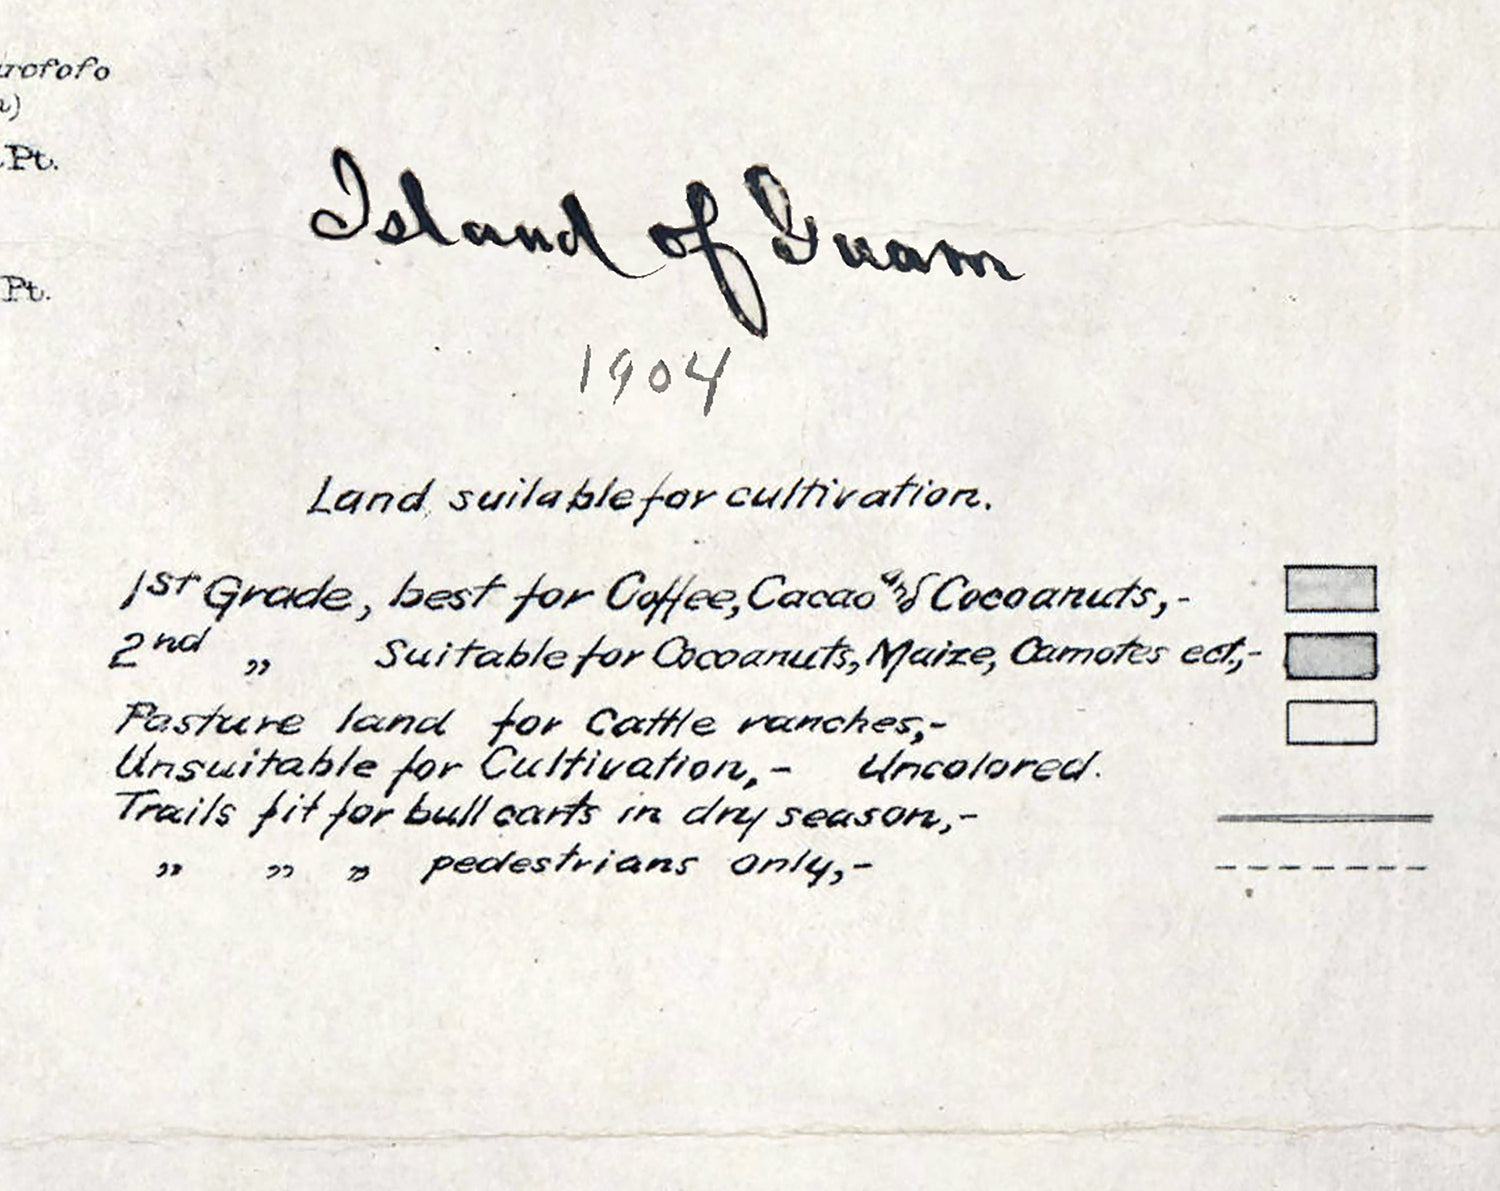 rofofo
Pt.
Pt.
Island of Guam
1904
Land suitable for cultivation.
1st Grade, best for Coffee, Cacao and Cocoanuts,-
2nd „ Suitable for Cocoanuts, Maize, Camotes ect,-
Pasture land for Cattle ranches,-
Unsuitable for Cultivation,- Uncolored.
Trails fit for bull carts in dry season,-
„ „ „ pedestrians only,-